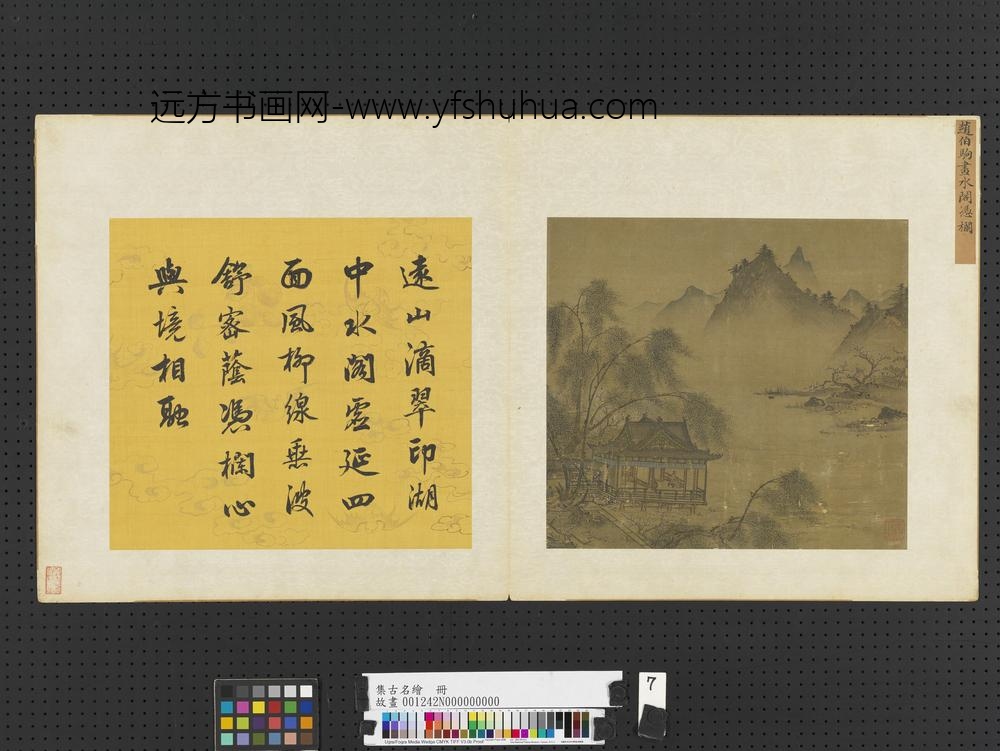 远方书画网-www.yfshuhua.com
趙伯駒畫水閣憑欄
遠山滴翠印湖
中水閣虛延四
面風柳線垂波
舒密蔭憑欄心
與境相融
集古名繪 冊
故畫 001242N000000000
7